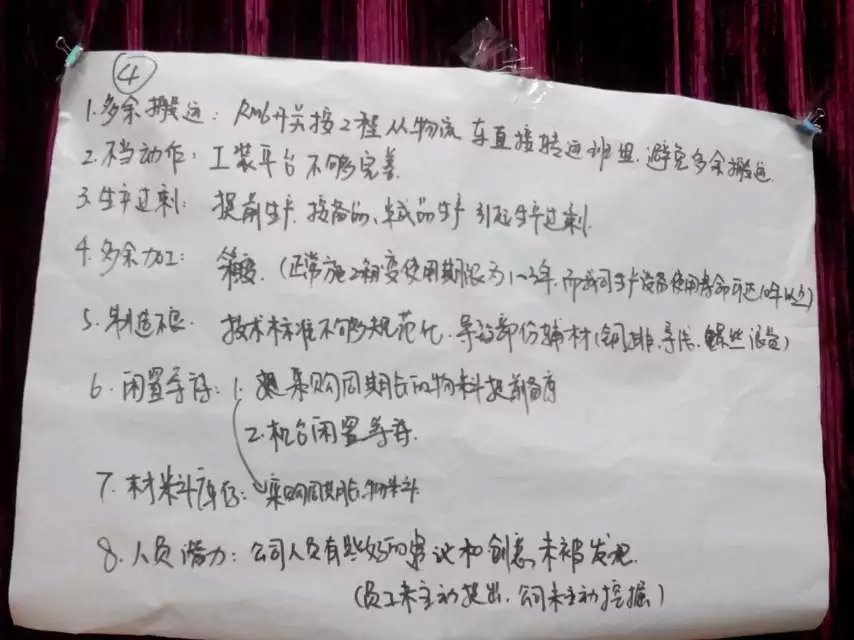 ④
1.多余搬运：RM6开关按工程从物流车直接转运班组.避免多余搬运
2.不当动作：工装平台不够完善.
3.生产过剩：提前生产.按备品、半成品生产引起生产过剩.
4.多余加工：箱变.(正常施工箱变使用期限为1~3年.而我司生产设备使用寿命可达10年以上)
5.制造不良.技术标准不够规范化.导致部份辅材(铜排.导线.螺丝浪费)
6.闲置等待：1.采购周期长的物料提前备库
2.机台闲置等待.
7.材料库存：采购周期长物料
8.人员潜力：公司人员有些好的建议和创意未被发现.
(员工未主动提出.公司未主动挖掘)